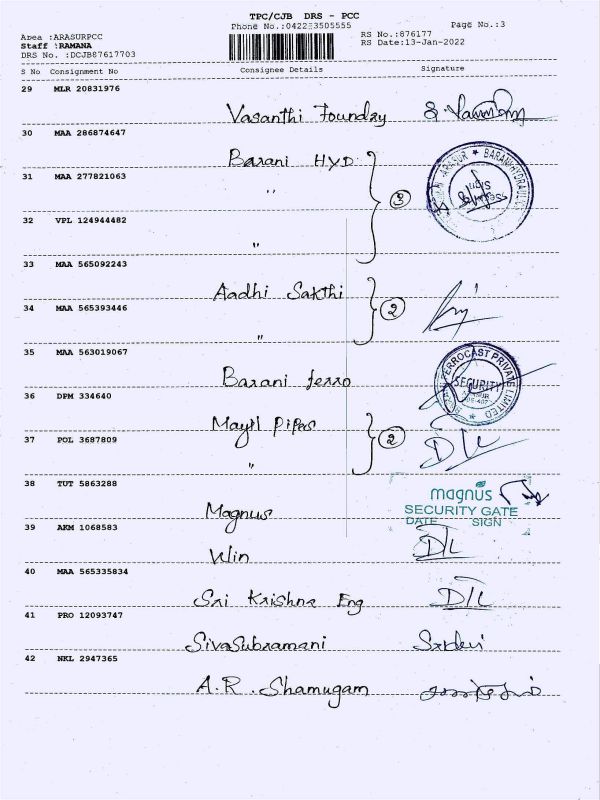 TPC/CJB DRS - PCC
Phone No.:04223505555
Page No.:3
Area :ARASURPCC
RS No.:876177
Staff :RAMANA
RS Date:13-Jan-2022
DRS No. :DCJB87617703
S No Consignment No Consignee Details Signature
29 MLR 20831976
Vasanthi Foundry
30 MAA 286874647
Barani HYD
31 MAA 277821063
"
3
32 VPL 124944482
"
33 MAA 565092243
Aadhi Sakthi
34 MAA 565393446
2
"
35 MAA 563019067
Barani ferro
SECURITY
36 DPM 334640
Mayil Pipes
37 POL 3687809
2
"
38 TUT 5863288
Magnus
magnus
SECURITY GATE
DATE SIGN
39 AKM 1068583
Win
40 MAA 565335834
Sri Krishna Eng
41 PRO 12093747
SivaSubramani
Sridevi
42 NKL 2947365
A.R. Shamugam